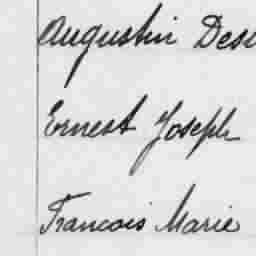 Augustin
Ernest Joseph
Francois Marie